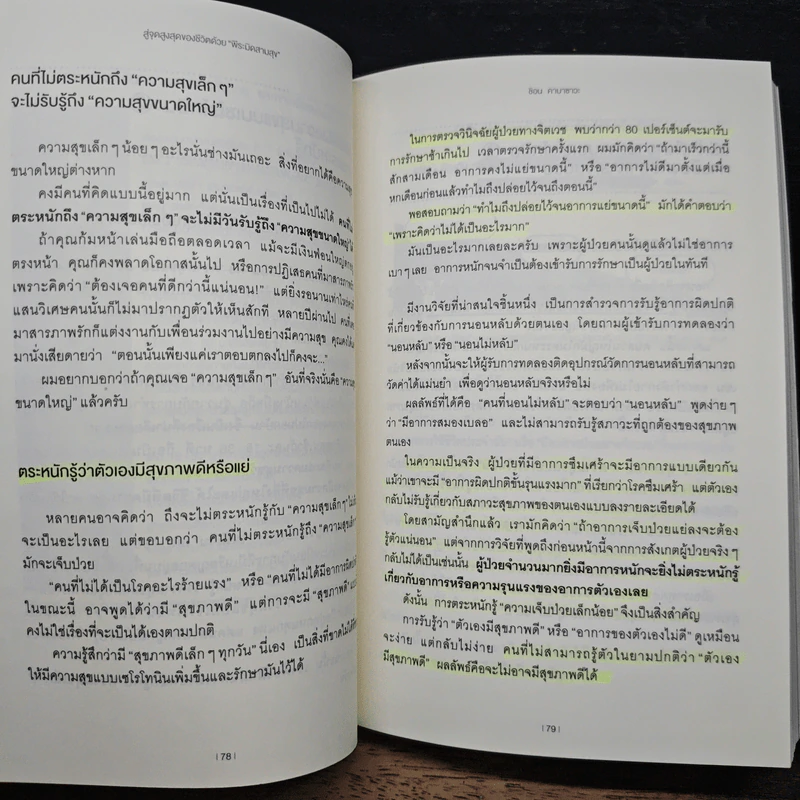 สู่จุดสูงสุดของชีวิตด้วย "พีระมิดสามสุข"
คนที่ไม่ตระหนักถึง "ความสุขเล็ก ๆ"
จะไม่รับรู้ถึง "ความสุขขนาดใหญ่"
ความสุขเล็ก ๆ น้อย ๆ อะไรนั่นช่างมันเถอะ สิ่งที่อยากได้คือความสุข
ขนาดใหญ่ต่างหาก
คงมีคนที่คิดแบบนี้อยู่มาก แต่นั่นเป็นเรื่องที่เป็นไปไม่ได้ คนที่
ตระหนักถึง "ความสุขเล็ก ๆ" จะไม่มีวันรับรู้ถึง "ความสุขขนาดใหญ่"
ถ้าคุณก้มหน้าเล่นมือถือตลอดเวลา แม้จะมีเงินฟ่อนใหญ่
ตรงหน้า คุณก็คงพลาดโอกาสนั้นไป หรือการปฏิเสธคนที่มาสารภาพรัก
เพราะคิดว่า "ต้องเจอคนที่ดีกว่านี้แน่นอน!" แต่ยิ่งรอนานเท่าไหร่
แสนวิเศษคนนั้นก็ไม่มาปรากฏตัวให้เห็นสักที หลายปีผ่านไป คนที่เคย
มาสารภาพรักก็แต่งงานกับเพื่อนร่วมงานไปอย่างมีความสุข คุณคงได้
มานั่งเสียดายว่า "ตอนนั้นเพียงแค่เราตอบตกลงไปก็คงจะ..."
ผมอยากบอกว่าถ้าคุณเจอ "ความสุขเล็ก ๆ" อันที่จริงนั่นคือ "ความสุข
ขนาดใหญ่" แล้วครับ
ตระหนักรู้ว่าตัวเองมีสุขภาพดีหรือแย่
หลายคนอาจคิดว่า ถึงจะไม่ตระหนักรู้กับ "ความสุขเล็ก ๆ"
จะเป็นอะไรเลย แต่ขอบอกว่า คนที่ไม่ตระหนักรู้ถึง "ความสุขเล็ก ๆ"
มักจะเจ็บป่วย
"คนที่ไม่ได้เป็นโรคอะไรร้ายแรง" หรือ "คนที่ไม่ได้มีอาการผิดปกติ
ในขณะนี้ อาจพูดได้ว่ามี "สุขภาพดี" แต่การจะมี "สุขภาพดี"
คงไม่ใช่เรื่องที่จะเป็นได้เองตามปกติ
ความรู้สึกว่ามี "สุขภาพดีเล็ก ๆ ทุกวัน" นี่เอง เป็นสิ่งที่ขาดไม่ได้
ให้มีความสุขแบบเซโรโทนินเพิ่มขึ้นและรักษามันไว้ได้
| 78 |
ชิอน คาบาซาวะ
ในการตรวจวินิจฉัยผู้ป่วยทางจิตเวช พบว่ากว่า 80 เปอร์เซ็นต์จะมารับ
การรักษาช้าเกินไป เวลาตรวจรักษาครั้งแรก ผมมักคิดว่า "ถ้ามาเร็วกว่านี้
สักสามเดือน อาการคงไม่แย่ขนาดนี้" หรือ "อาการไม่ดีมาตั้งแต่เมื่อ
หกเดือนก่อนแล้วทำไมถึงปล่อยไว้จนถึงตอนนี้"
พอสอบถามว่า "ทำไมถึงปล่อยไว้จนอาการแย่ขนาดนี้" มักได้คำตอบว่า
"เพราะคิดว่าไม่ได้เป็นอะไรมาก"
มันเป็นอะไรมากเลยละครับ เพราะผู้ป่วยคนนั้นดูแล้วไม่ใช่อาการ
เบาๆ เลย อาการหนักจนจำเป็นต้องเข้ารับการรักษาเป็นผู้ป่วยในทันที
มีงานวิจัยที่น่าสนใจชิ้นหนึ่ง เป็นการสำรวจการรับรู้อาการผิดปกติ
ที่เกี่ยวข้องกับการนอนหลับด้วยตนเอง โดยถามผู้เข้ารับการทดลองว่า
"นอนหลับ" หรือ "นอนไม่หลับ"
หลังจากนั้นจะให้ผู้รับการทดลองติดอุปกรณ์วัดการนอนหลับที่สามารถ
วัดค่าได้แม่นยำ เพื่อดูว่านอนหลับจริงหรือไม่
ผลลัพธ์ที่ได้คือ "คนที่นอนไม่หลับ" จะตอบว่า "นอนหลับ" พูดง่าย ๆ
ว่า "มีอาการสมองเบลอ" และไม่สามารถรับรู้สภาวะที่ถูกต้องของสุขภาพ
ตนเอง
ในความเป็นจริง ผู้ป่วยที่มีอาการซึมเศร้าจะมีอาการแบบเดียวกัน
แม้ว่าเขาจะมี "อาการผิดปกติขั้นรุนแรงมาก" ที่เรียกว่าโรคซึมเศร้า แต่ตัวเอง
กลับไม่รับรู้เกี่ยวกับสภาวะสุขภาพของตนเองแบบลงรายละเอียดได้
โดยสามัญสำนึกแล้ว เรามักคิดว่า "ถ้าอาการเจ็บป่วยแย่ลงจะต้อง
รู้ตัวแน่นอน" แต่จากการวิจัยที่พูดถึงก่อนหน้านี้จากการสังเกตผู้ป่วยจริง ๆ
กลับไม่ได้เป็นเช่นนั้น ผู้ป่วยจำนวนมากยิ่งมีอาการหนักจะยิ่งไม่ตระหนักรู้
เกี่ยวกับอาการหรือความรุนแรงของอาการตัวเองเลย
ดังนั้น การตระหนักรู้ "ความเจ็บป่วยเล็กน้อย" จึงเป็นสิ่งสำคัญ
การรับรู้ว่า "ตัวเองมีสุขภาพดี" หรือ "อาการของตัวเองไม่ดี" ดูเหมือน
จะง่าย แต่กลับไม่ง่าย คนที่ไม่สามารถรู้ตัวในยามปกติว่า "ตัวเอง
มีสุขภาพดี" ผลลัพธ์คือจะไม่อาจมีสุขภาพดีได้
| 79 |